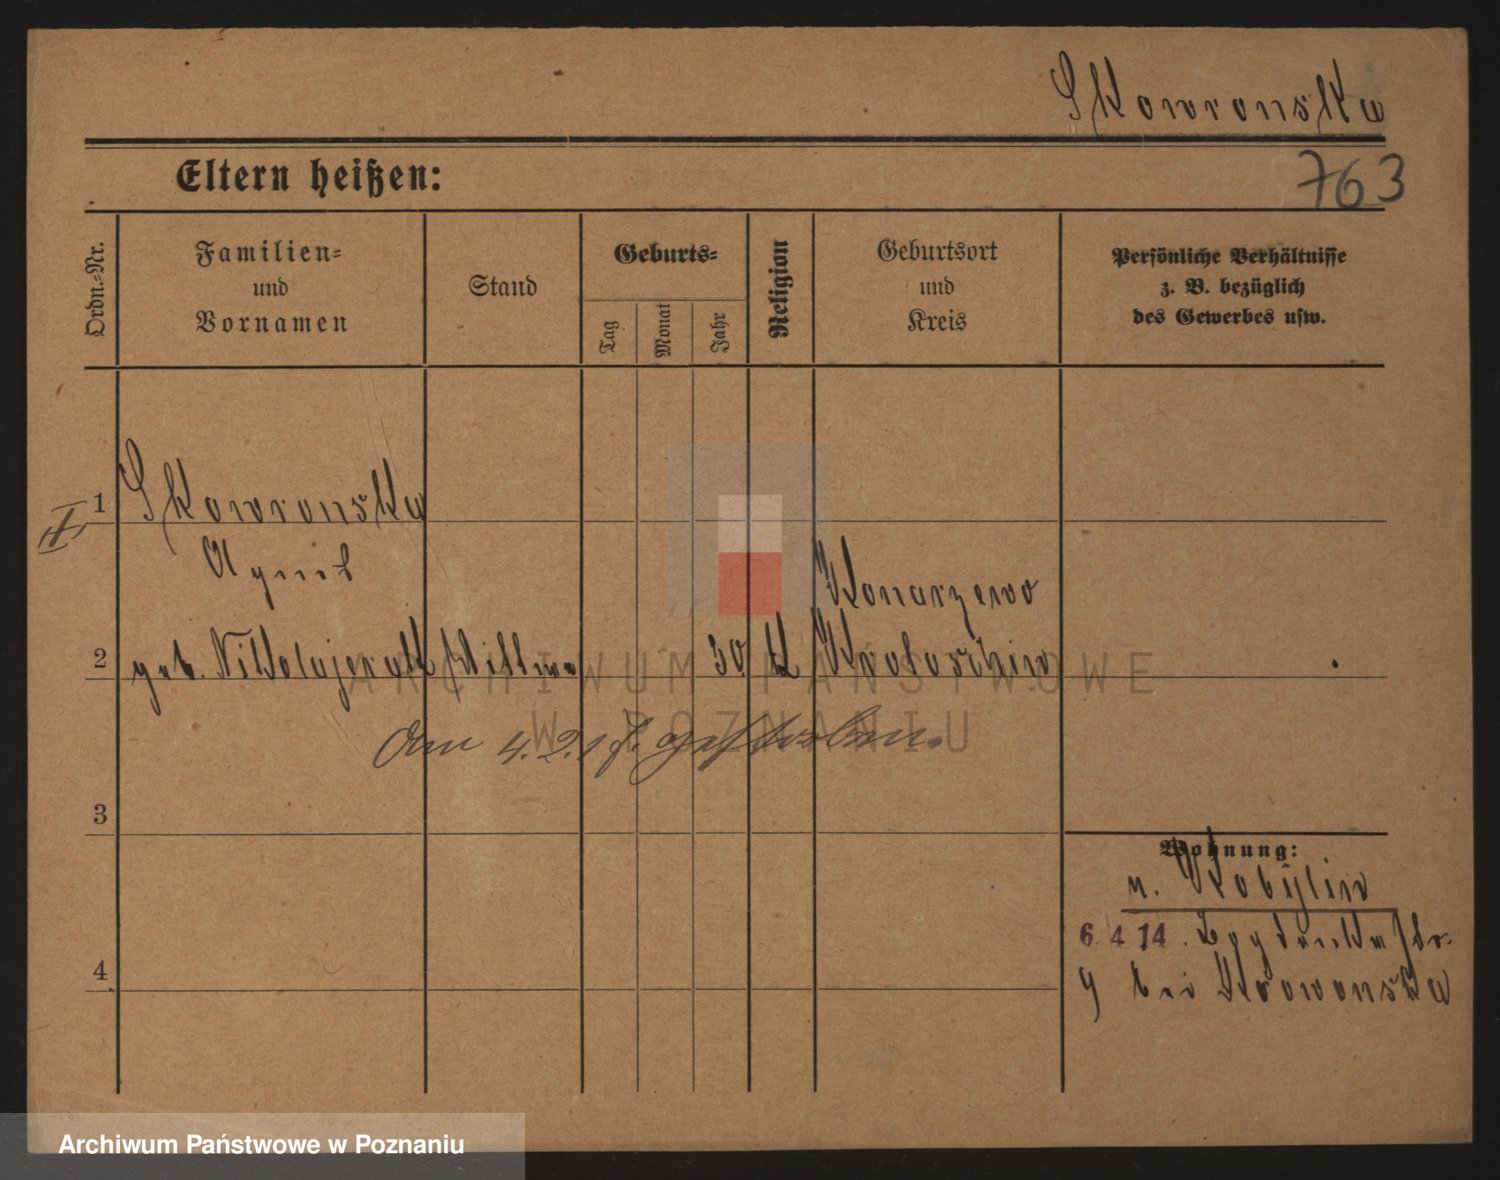 Skowronska
Eltern heißen:
763
Ordn.-Nr.
Familien-
und
Vornamen
Stand
Geburts-
Tag
Monat
Jahr
Religion
Geburtsort
und
Kreis
Persönliche Verhältnisse
z. B. bezüglich
des Gewerbes usw.
1
Skowronska
II
Agnes
Konarzewo
2
geb. Nikolajczak Wittwe 30 k Krotoschin
Am 4.2.17. gestorben.
3
Wohnung:
v. Kobylin
6. 4 14.
4
9 bei
ARCHIWUM PAŃSTWOWE
W POZNANIU
Archiwum Państwowe w Poznaniu